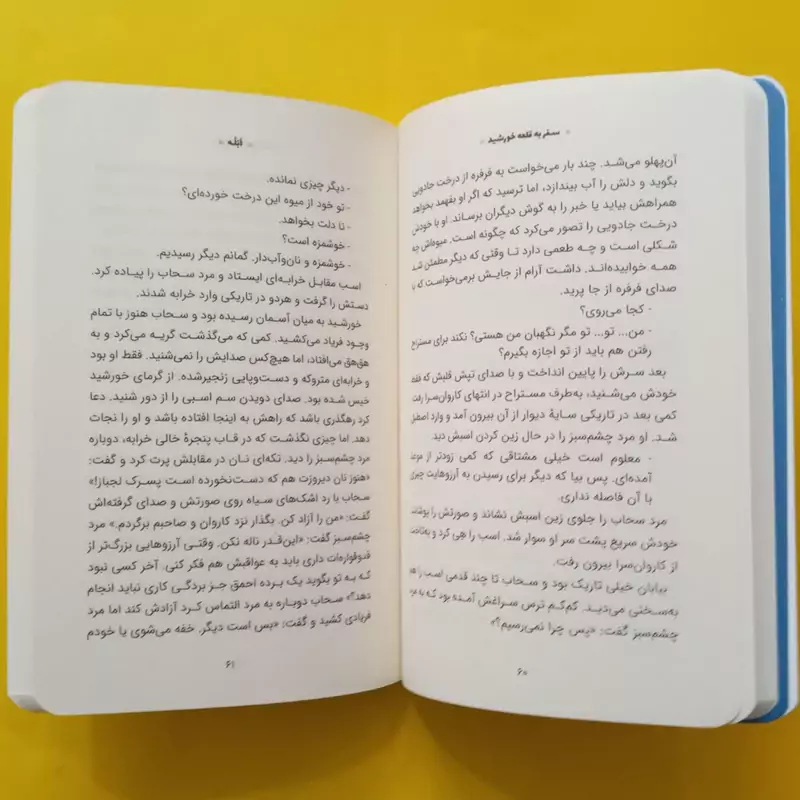 سفر به قلعه خورشید
آن‌پهلو می‌شد. چند بار می‌خواست به فرفره از درخت جادویی
بگوید و دلش را آب بیندازد، اما ترسید که اگر او بفهمد بخواهد
همراهش بیاید یا خبر را به گوش دیگران برساند. او با خودش
درخت جادویی را تصور می‌کرد که چگونه است. میوه‌اش چه
شکلی است و چه طعمی دارد تا وقتی که دیگر مطمئن شد
همه خوابیده‌اند. داشت آرام از جایش برمی‌خواست که با
صدای فرفره از جا پرید.
- کجا می‌روی؟
- من... تو... تو مگر نگهبان من هستی؟ نکند برای مستراح
رفتن هم باید از تو اجازه بگیرم؟
بعد سرش را پایین انداخت و با صدای تپش قلبش که فقط
خودش می‌شنید، به‌طرف مستراح در انتهای کاروان‌سرا رفت
کمی بعد در تاریکی سایهٔ دیوار از آن بیرون آمد و وارد اصطبل
شد. او مرد چشم‌سبز را در حال زین کردن اسبش دید.
- معلوم است خیلی مشتاقی که کمی زودتر از موعد
آمده‌ای. پس بیا که دیگر برای رسیدن به آرزوهایت چیزی
با آن فاصله نداری.
مرد سحاب را جلوی زین اسبش نشاند و صورتش را پوشاند
خودش سریع پشت سر او سوار شد. اسب را هی کرد و به‌تاخت
از کاروان‌سرا بیرون رفت.
بیابان خیلی تاریک بود و سحاب تا چند قدمی اسب را هم
به‌سختی می‌دید. کم‌کم ترس سراغش آمده بود که به مرد
چشم‌سبز گفت: «پس چرا نمی‌رسیم؟»
۶۰
- دیگر چیزی نمانده.
- تو خود از میوه این درخت خورده‌ای؟
- تا دلت بخواهد.
- خوشمزه است؟
- خوشمزه و نان‌وآب‌دار. گمانم دیگر رسیدیم.
اسب مقابل خرابه‌ای ایستاد و مرد سحاب را پیاده کرد.
دستش را گرفت و هردو در تاریکی وارد خرابه شدند.
خورشید به میان آسمان رسیده بود و سحاب هنوز با تمام
وجود فریاد می‌کشید. کمی که می‌گذشت گریه می‌کرد و به
هق‌هق می‌افتاد، اما هیچ‌کس صدایش را نمی‌شنید. فقط او بود
و خرابه‌ای متروکه و دست‌وپایی زنجیرشده. از گرمای خورشید
خیس شده بود. صدای دویدن سم اسبی را از دور شنید. دعا
کرد رهگذری باشد که راهش به اینجا افتاده باشد و او را نجات
دهد. اما چیزی نگذشت که در قاب پنجرهٔ خالی خرابه، دوباره
مرد چشم‌سبز را دید. تکه‌ای نان در مقابلش پرت کرد و گفت:
«هنوز نان دیروزت هم که دست‌نخورده است پسرک لجباز!»
سحاب با رد اشک‌های سیاه روی صورتش و صدای گرفته‌اش
گفت: «من را آزاد کن. بگذار نزد کاروان و صاحبم برگردم.» مرد
چشم‌سبز گفت: «این‌قدر ناله نکن. وقتی آرزوهایی بزرگ‌تر از
قدوقواره‌ات داری باید به عواقبش هم فکر کنی. آخر کسی نبود
که به تو بگوید یک برده احمق جز بردگی کاری نباید انجام
دهد؟» سحاب دوباره به مرد التماس کرد آزادش کند اما مرد
فریادی کشید و گفت: «بس است دیگر. خفه می‌شوی یا خودم
۶۱